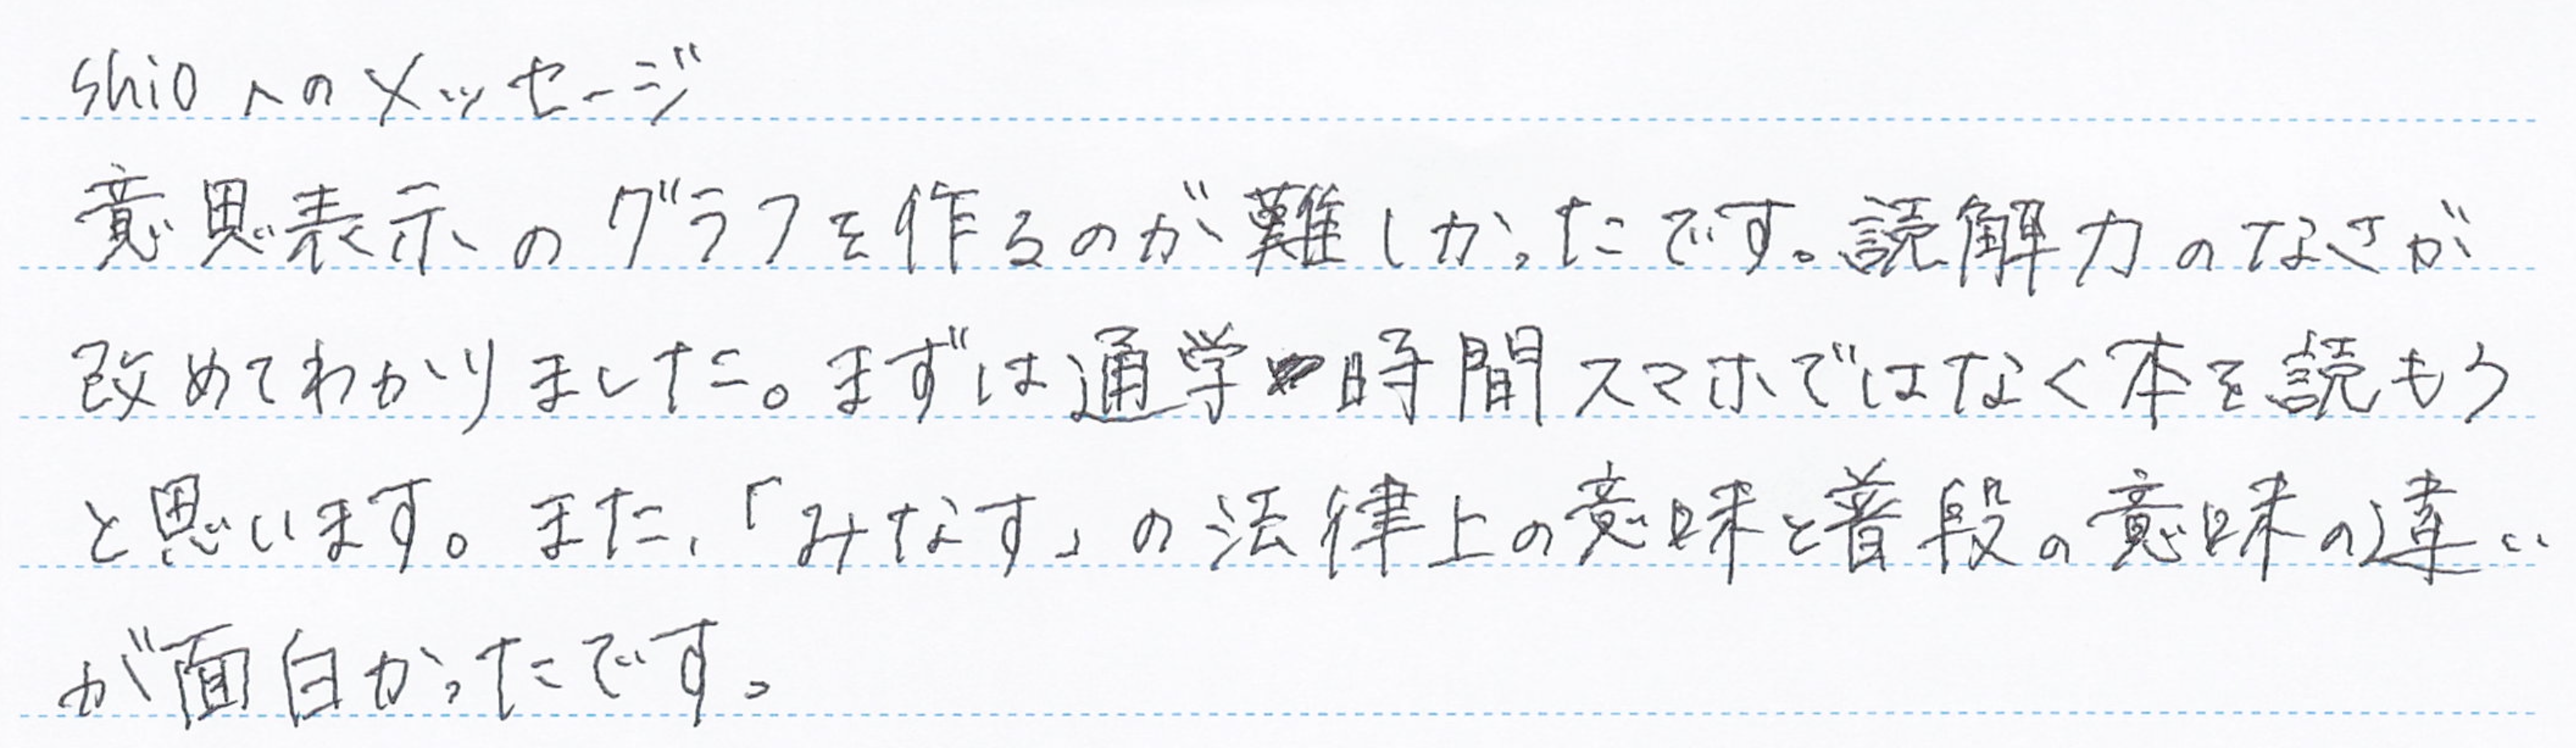 shioへのメッセージ
意思表示のグラフを作るのが難しかったです。読解力のなさが
改めてわかりました。まずは通学時間スマホではなく本を読もう
と思います。また、「みなす」の法律上の意味と普段の意味の違い
が面白かったです。